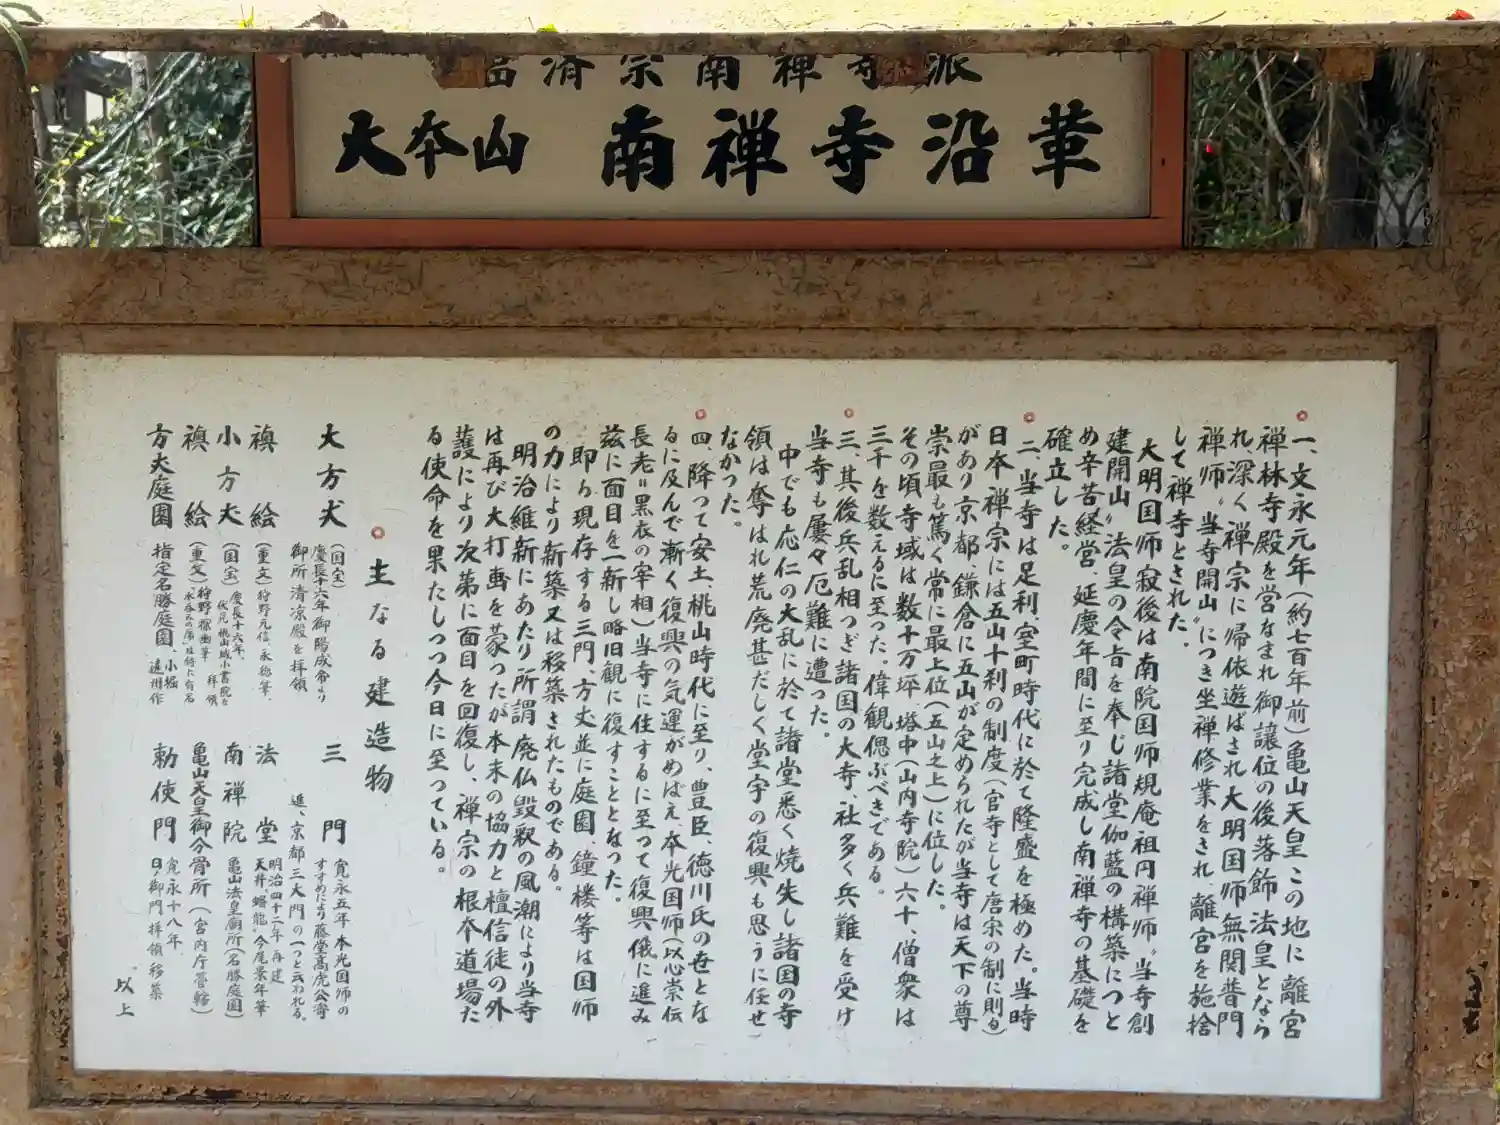 臨済宗南禅寺派
大本山 南禅寺沿革
一、文永元年(約七百年前)亀山天皇この地に離宮
禅林寺殿を営なまれ御譲位の後落飾法皇となら
れ、深く禅宗に帰依遊ばされ大明国師無関普門
禅師〝当寺開山〟につき坐禅修業をされ、離宮を施捨
して禅寺とされた。
大明国師寂後は南院国師規庵祖円禅師〝当寺創
建開山〟法皇の令旨を奉じ諸堂伽藍の構築につと
め辛苦経営、延慶年間に至り完成し南禅寺の基礎を
確立した。
二、当寺は足利、室町時代に於て隆盛を極めた。当時
日本禅宗には五山十刹の制度(官寺として唐宋の制に則る)
があり京都、鎌倉に五山が定められたが当寺は天下の尊
崇最も篤く常に最上位(五山之上)に位した。
その頃寺域は数十万坪、塔中(山内寺院)六十、僧衆は
三千を数えるに至った。偉観偲ぶべきである。
三、其後兵乱相つぎ諸国の大寺、社多く兵難を受け
当寺も屢々厄難に遭った。
中でも応仁の大乱に於て諸堂悉く焼失し諸国の寺
領は奪はれ荒廃甚だしく堂宇の復興も思うに任せ
なかった。
四、降って安土、桃山時代に至り、豊臣、徳川氏の世とな
るに及んで漸く復興の気運がめばえ、本光国師(以心崇伝
長老〝黒衣の宰相)当寺に住するに至って復興俄に進み
茲に面目を一新し略旧観に復すこととなった。
即ち現存する三門、方丈並に庭園、鐘楼等は国師
の力により新築又は移築されたものである。
明治維新にあたり所謂廃仏毀釈の風潮により当寺
は再び大打撃を蒙ったが本末の協力と檀信徒の外
護により次第に面目を回復し、禅宗の根本道場た
る使命を果たしつつ今日に至っている。
主なる建造物
大方丈
(国宝)
慶長十六年御陽成帝より
御所清凉殿を拝領
襖絵
(重文)狩野元信、永徳筆、
小方丈
(国宝)慶長十六年、
伏見桃山城小書院を拝領
襖絵
(重文)狩野探幽筆
「水呑の虎」は特に有名
方丈庭園 指定名勝庭園、小堀
遠州作
三門
寛永五年本光国師の
すすめにより藤堂高虎公寄
進、京都三大門の一つと云われる。
法堂
明治四十二年再建
天井〝蟠龍〟今尾景年筆
南禅院 亀山法皇廟所(名勝庭園)
亀山天皇御分骨所(宮内庁管轄)
勅使門
寛永十八年、
日ノ御門拝領移築
以上